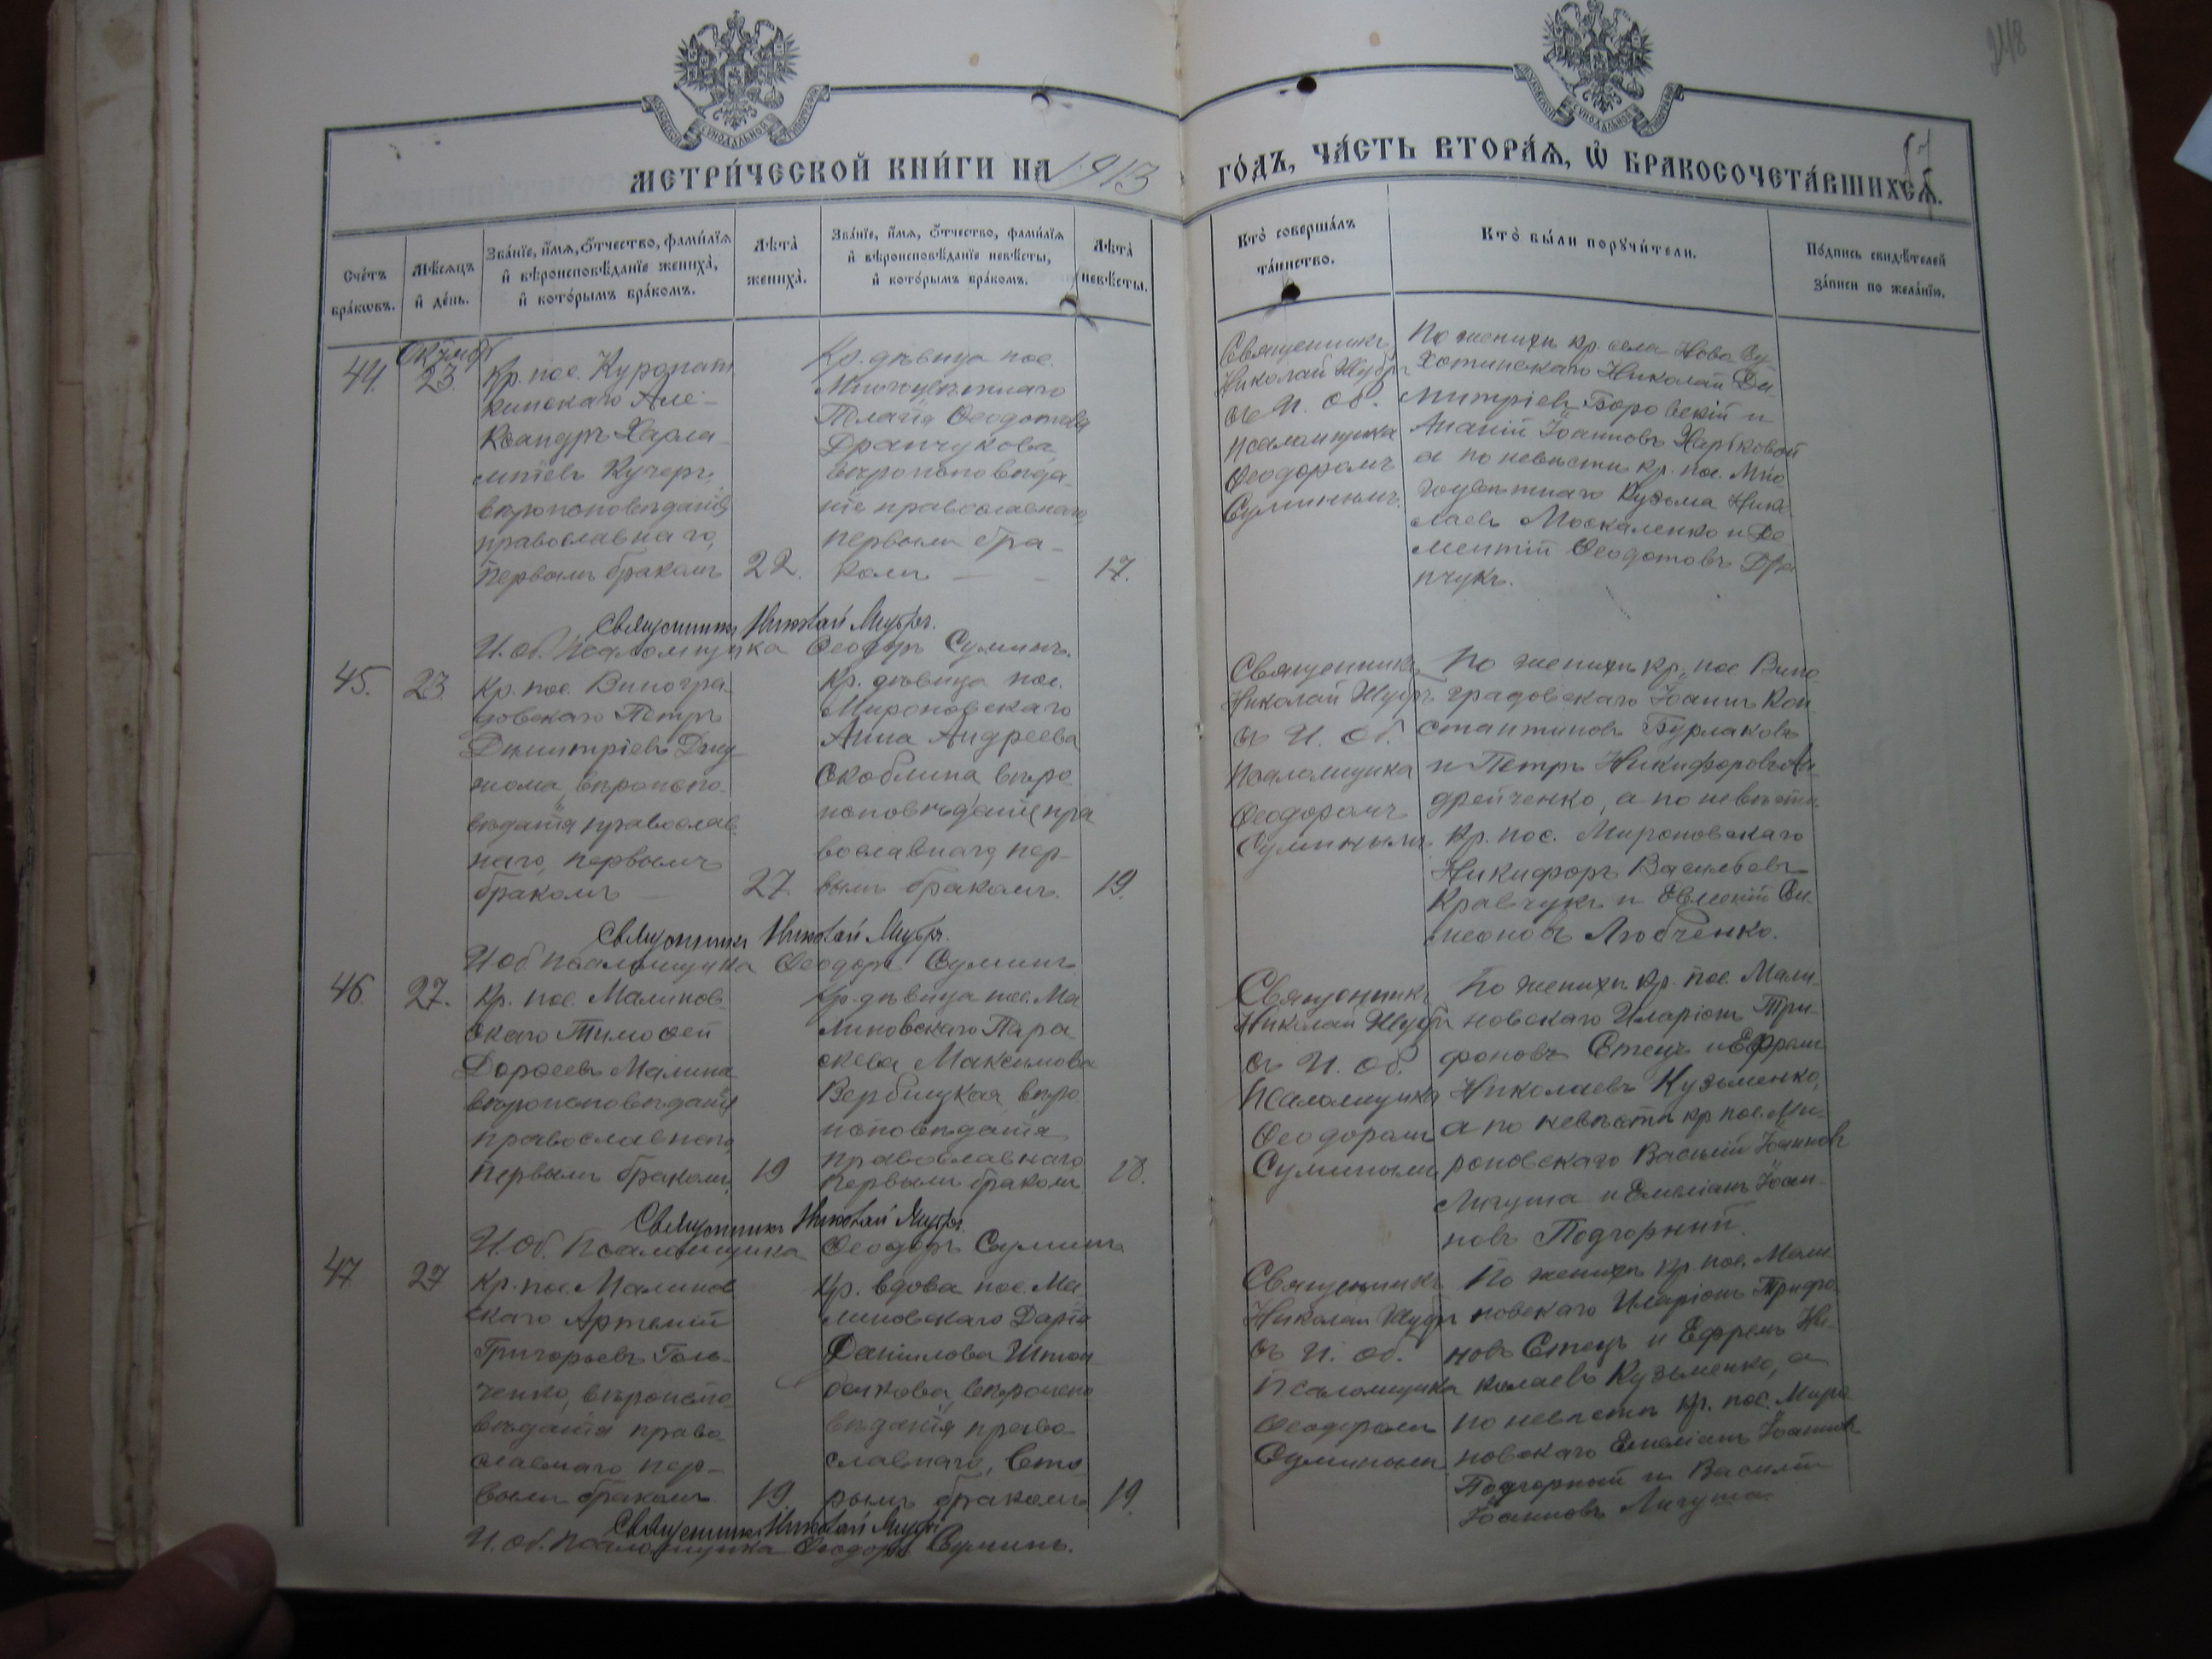 248
МЕТРИ́ЧЕСКОЙ КНИ́ГИ НА 1913 ГО́ДЪ, ЧА́СТЬ ВТОРА́Ѧ, Ѡ҆ БРАКОСОЧЕТА́ВШИХСѦ.
Счетъ бра́кѡвъ.
Мѣ́сѧцъ и҆ де́нь.
Зва́нїе, и҆́мѧ, ѻ҆́тчество, фами́лїѧ и҆ вѣроисповѣ́данїе жениха̀, и҆ кото́рымъ бра́комъ.
Лѣта̀ жениха̀.
Зва́нїе, и҆́мѧ, ѻ҆́тчество, фами́лїѧ и҆ вѣроисповѣ́данїе невѣ́сты, и҆ кото́рымъ бра́комъ.
Лѣта̀ невѣ́сты.
Кто̀ соверша́лъ та́инство.
Кто̀ бы́ли порꙋчи́тели.
По́дпись свидѣ́телей за́писи по жела́нїю.
44.
23.
Кр. пос. Куропат
кинскаго Але-
ксандръ Харла-
мпіевъ Кучеръ,
вѣроисповѣданія
православнаго,
первымъ бракомъ
22.
Кр. дѣвица пос.
Многоцвѣтнаго
Пелагія Ѳеодотова
Дранчукова,
вѣроисповѣда-
нія православнаго,
первымъ бра-
комъ
17.
Священникъ
Николай
съ И. Об.
псаломщика
Ѳеодоромъ
Суминымъ.
По женихѣ кр. села
Николай Ди-
митріевъ Боровскій и
Ананій Іоанновъ
а по невѣстѣ кр. пос. Мно-
гоцвѣтнаго Кузьма Нико
лаевъ Москаленко и Де
ментій Ѳеодотовъ Дра
нчукъ.
Священникъ Николай
И. Об. Псаломщика Ѳеодоръ Суминъ.
45.
23.
Кр. пос. Виногра-
довскаго Петръ
Димитріевъ
вѣроиспо-
вѣданія православ
наго, первымъ
бракомъ
27.
Кр. дѣвица пос.
Мироновскаго
Анна Андреева
Скоблина вѣро-
исповѣданія пра
вославнаго, пер-
вымъ бракомъ.
19.
Священникъ
Николай
съ И. Об.
Псаломщика
Ѳеодоромъ
Суминымъ
По женихѣ кр. пос. Вино-
градовскаго Іоаннъ Кон-
стантиновъ Бурлаковъ
и Петръ Никифоровъ Ан-
дрейченко, а по невѣстѣ
кр. пос. Мироновскаго
Никифоръ Васильевъ
Кравчукъ и Евменій Си-
меоновъ Любченко.
Священникъ Николай
И. Об. Псаломщика Ѳеодоръ Суминъ
46.
27.
Кр. пос. Малинов-
скаго Тимоѳей
Дороѳеевъ Малина
вѣроисповѣданія
православнаго,
первымъ бракомъ,
19
Кр. дѣвица пос. Ма
линовскаго Пара-
скева Максимова
Вербицкая, вѣро
исповѣданія
православнаго
первымъ бракомъ.
18.
Священникъ
Николай
съ И. Об.
Псаломщика
Ѳеодоромъ
Суминымъ
По женихѣ кр. пос. Мали-
новскаго Иларіонъ Три-
фоновъ Стець и Ефремъ
Николаевъ Кузьменко,
а по невѣстѣ кр. пос. Ми-
роновскаго Василій Іоанновъ
Личуша и Емеліанъ Іоан-
новъ Подгорный.
Священникъ Николай
И. Об. Псаломщика Ѳеодоръ Суминъ
47
27
Кр. пос. Малинов
скаго Артемій
Григорьевъ Голь-
ченко, вѣроиспо-
вѣданія право-
славнаго пер-
вымъ бракомъ.
19.
Кр. вдова пос. Ма
линовскаго Дарія
Даніилова
вѣроиспо
вѣданія право-
славнаго, вто
рымъ бракомъ
19
Священникъ
Николай
съ И. Об.
Псаломщика
Ѳеодоромъ
Суминымъ
По женихѣ кр. пос. Мали
новскаго Иларіонъ Трифо-
новъ Стець и Ефремъ Ни-
колаевъ Кузьменко, а
по невѣстѣ кр. пос. Миро
новскаго Емеліанъ Іоанновъ
Подгорный и Василій
Іоанновъ Личуша.
Священникъ Николай
И. Об. Псаломщика Ѳеодоръ Суминъ.